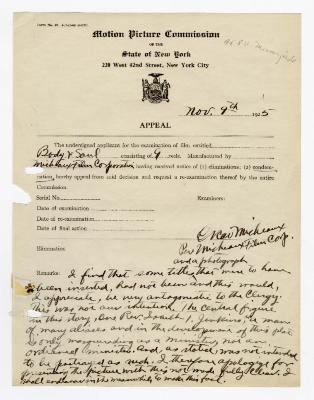 Motion Picture Commission
OF THE
State of New York
220 West 42nd Street, New York City
Nov. 9th 1925
APPEAL
The undersigned applicant for the examination of film entitled
Body & Soul consisting of 9 reels. Manufactured by
Micheaux Film Corporation having received notice of (1) eliminations; (2) condem-
nation, hereby appeal from said decision and request a re-examination thereof by the entire
Commission.
Serial No. Examiners:
Date of examination
Date of re-examination
Date of final action
Oscar Micheaux
Elimination: Per Micheaux Film Corp.
and a photograph
Remarks: I find that some titles that were to have
been inserted, had not been and this would,
I appreciate, be very antagonistic to the Clergy.
This was not our intention. The central figure
in this story, Rev. Isaiah T. Jenkins, is man
of many aliases and in the development of this plot
is only masquerading as a minister, not an
ordained minister. And, as stated, was not intended
to be portrayed as such. I therefore apologize for
presenting the picture with this not made fully clear. I
shall endeavor in the meantime to make this so.